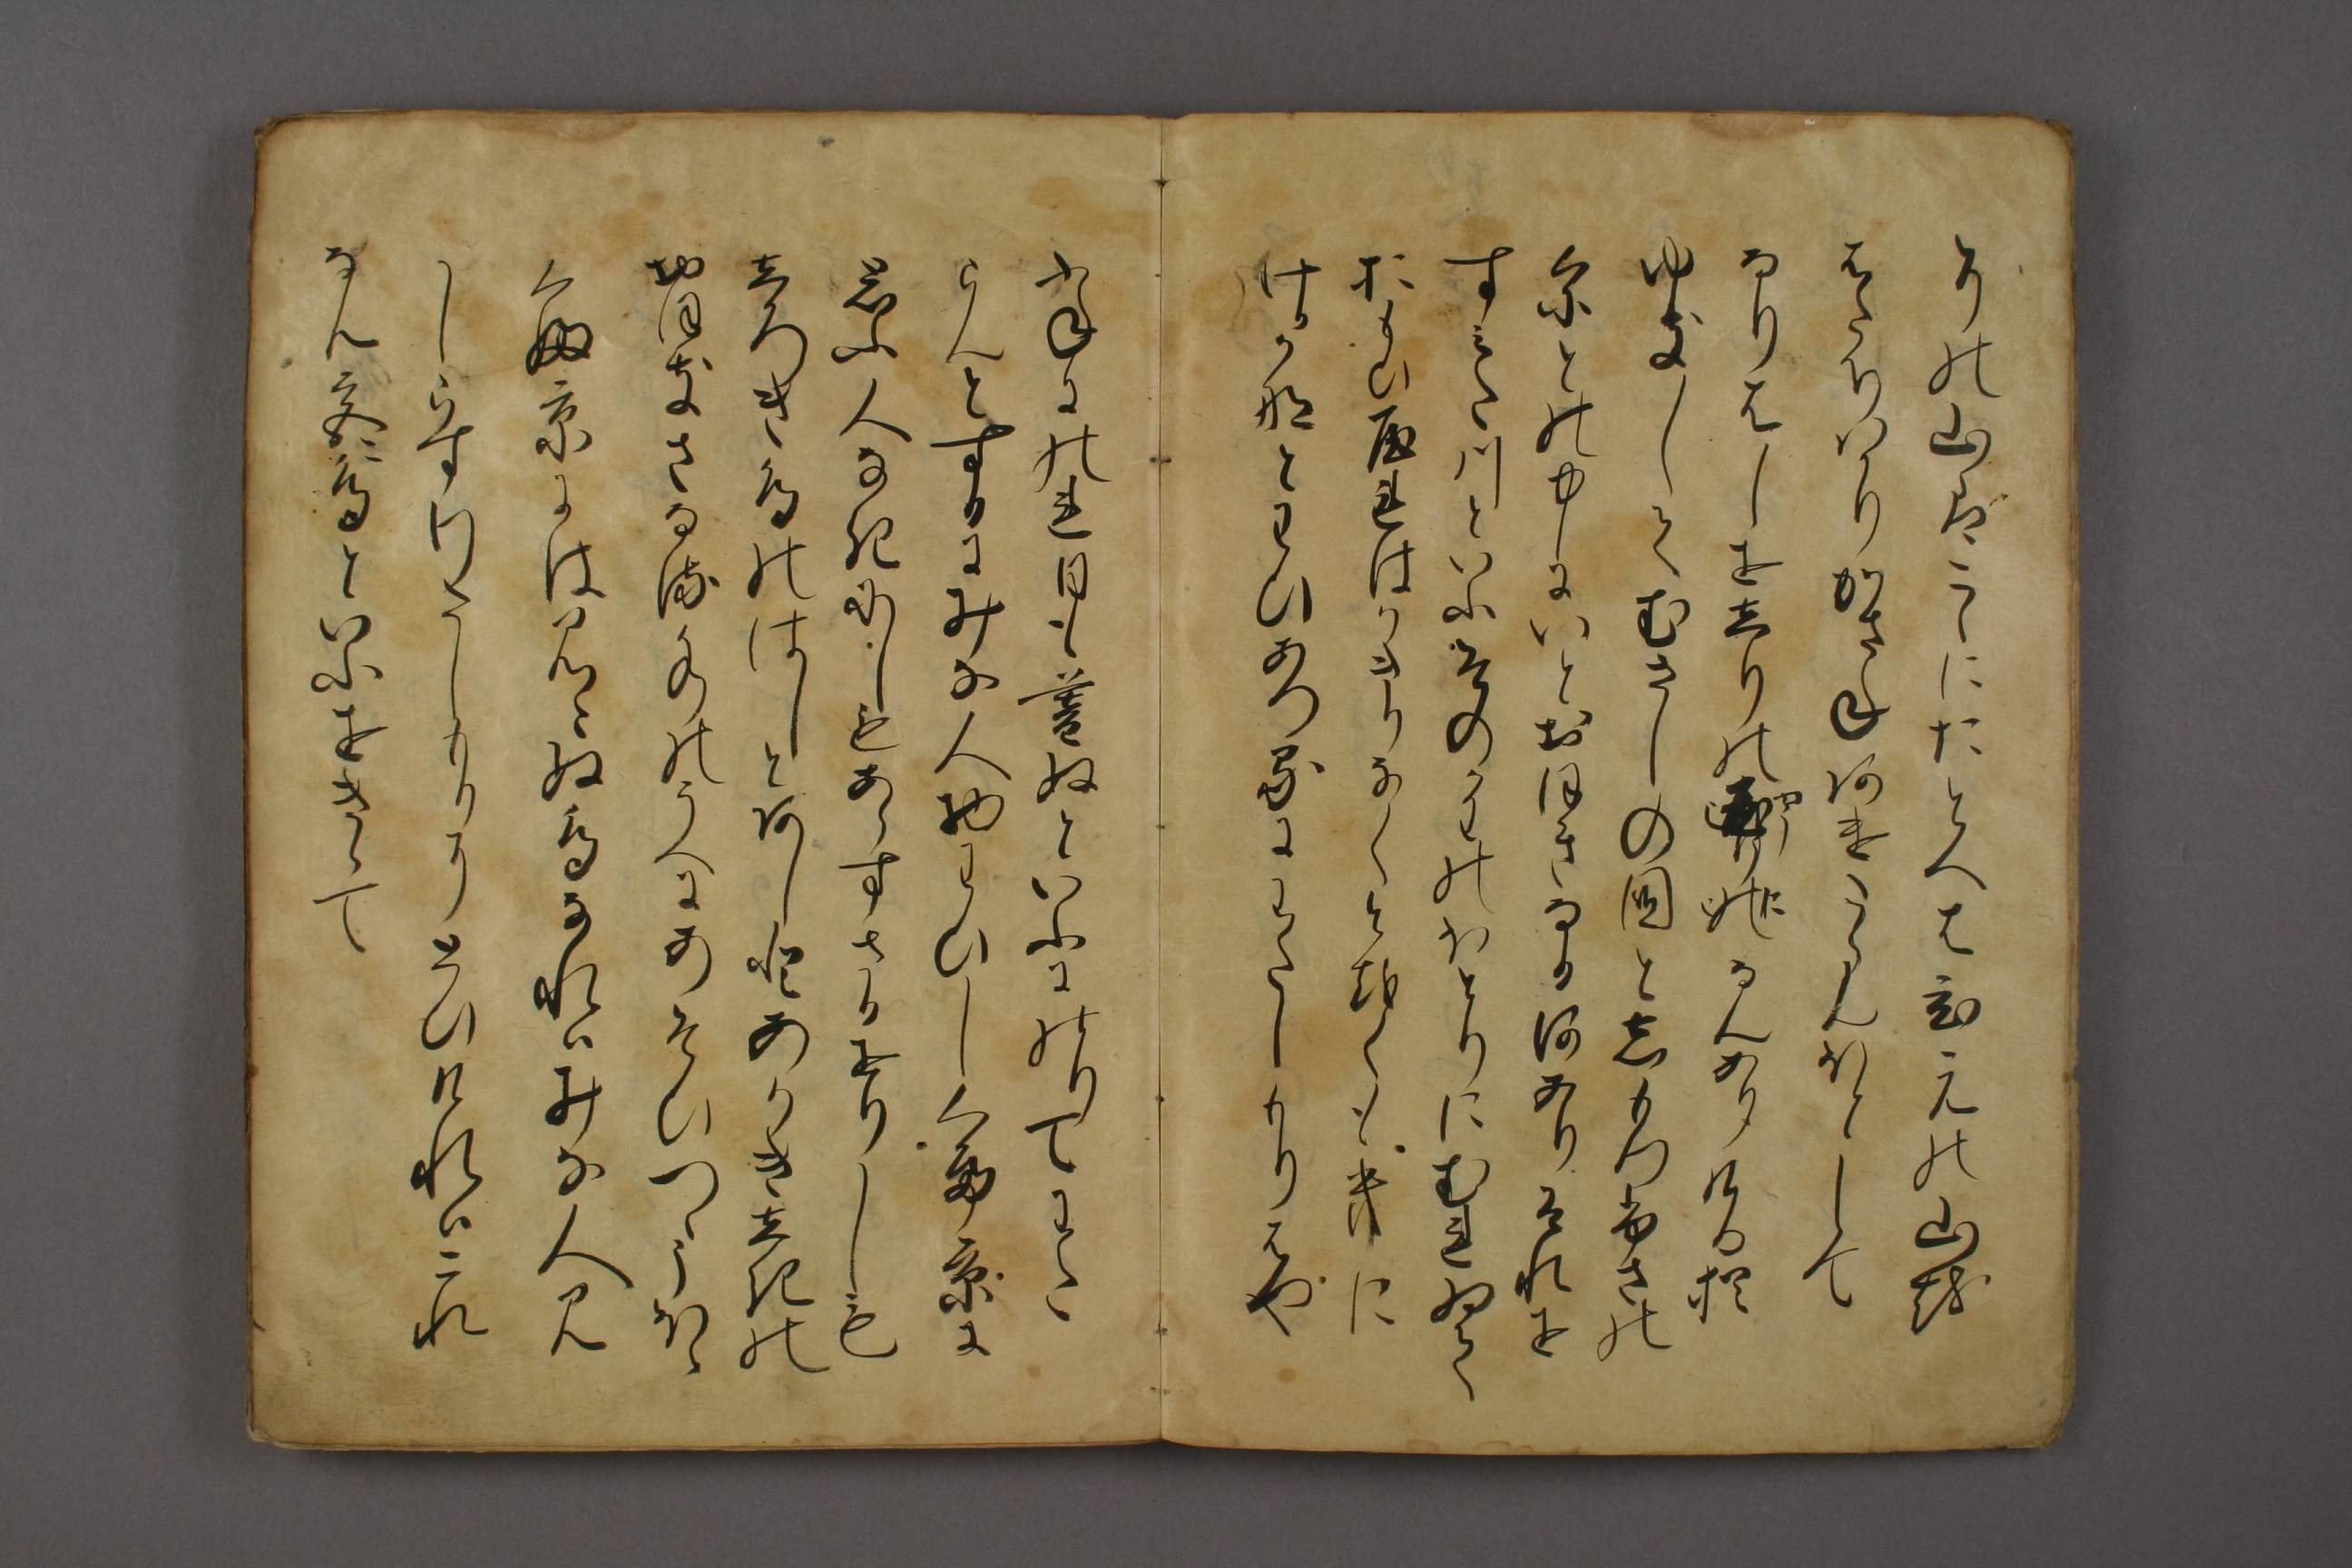 その山はこゝにたとへはひえの山を
はたちはかりかさねあけたらんほとして
なりはしほしりのやうになんありける猶
ゆき〳〵てむさしの国としもつふさの
くにとの中にいとおほきなる河ありそれを
すみた川といふそのかはのほとりにむれゐて
おもひやれはかきりなくとをくもきに
けるかなとわひあへるにわたしもりはや
ふねにのれ日も暮ぬといふにのりてわた
らんとするにみな人物わひしくて京に
思ふ人なきにしもあらすさるをりしも
しろきとりのはしとあしとあかきしきの
おほきさなる水のうへにあそひつゝうを
くふ京には見えぬ鳥なれはみな人見
しらすわたしもりにとひけれはこれ
なん宮こ鳥といふをきゝて